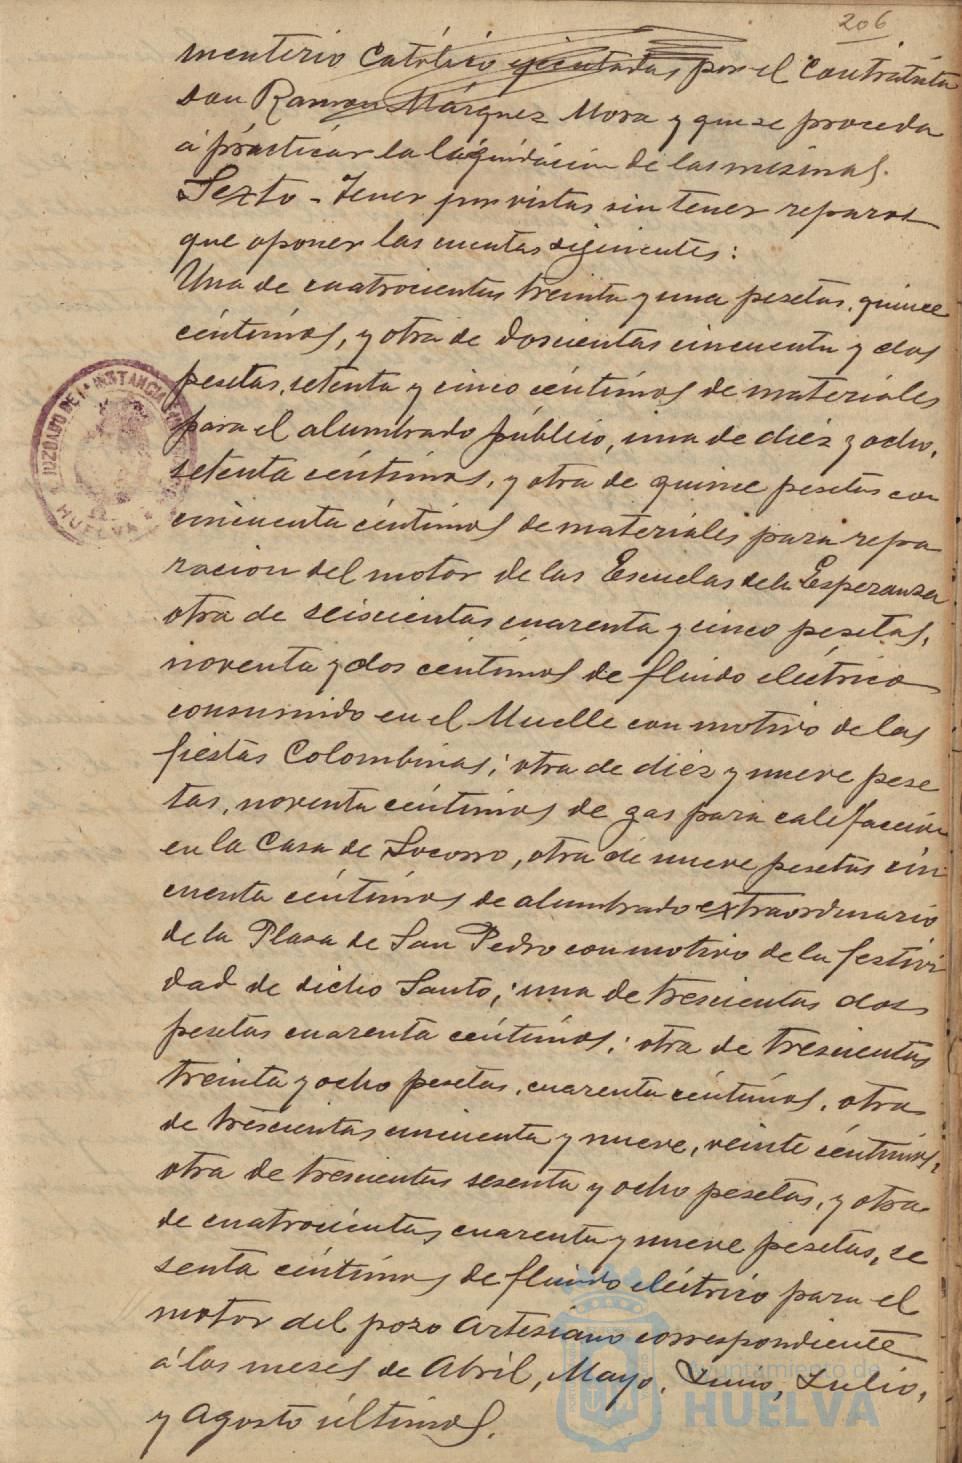 206
menterio Católico ejecutadas por el Contratista
don Ramon Márquez Mora y que se proceda
á practicar la liquidación de las mismas.
Sexto - Tener por vistas sin tener reparos
que oponer las cuentas siguientes:
Una de cuatrocientas treinta y una pesetas, quince
céntimos, y otra de doscientas cincuenta y dos
pesetas, setenta y cinco céntimos de materiales
para el alumbrado público, una de diez y ocho,
setenta céntimos, y otra de quince pesetas con
cincuenta céntimos de materiales para repa
racion del motor de las Escuelas de la Esperanza
otra de seiscientas cuarenta y cinco pesetas,
noventa y dos céntimos de fluido eléctrico
consumido en el Muelle con motivo de las
fiestas Colombinas; otra de diez y nueve pese
tas, noventa céntimos de gas para calefacción
en la Casa de Socorro, otra de nueve pesetas cin
cuenta céntimos de alumbrado extraordinario
de la Plasa de San Pedro con motivo de la festivi
dad de dicho Santo; una de trescientas dos
pesetas cuarenta céntimos; otra de trescientas
treinta y ocho pesetas, cuarenta céntimos, otra
de trescientas cincuenta y nueve, veinte céntimos,
otra de trescientas sesenta y ocho pesetas, y otra
de cuatrocientas cuarenta y nueve pesetas, se
senta céntimos de fluido eléctrico para el
motor del pozo Artesiano correspondiente
á los meses de Abril, Mayo, Junio, Julio,
y Agosto últimos.
JUZGADO DE 1ª INSTANCIA
HUELVA
Ayuntamiento de
HUELVA